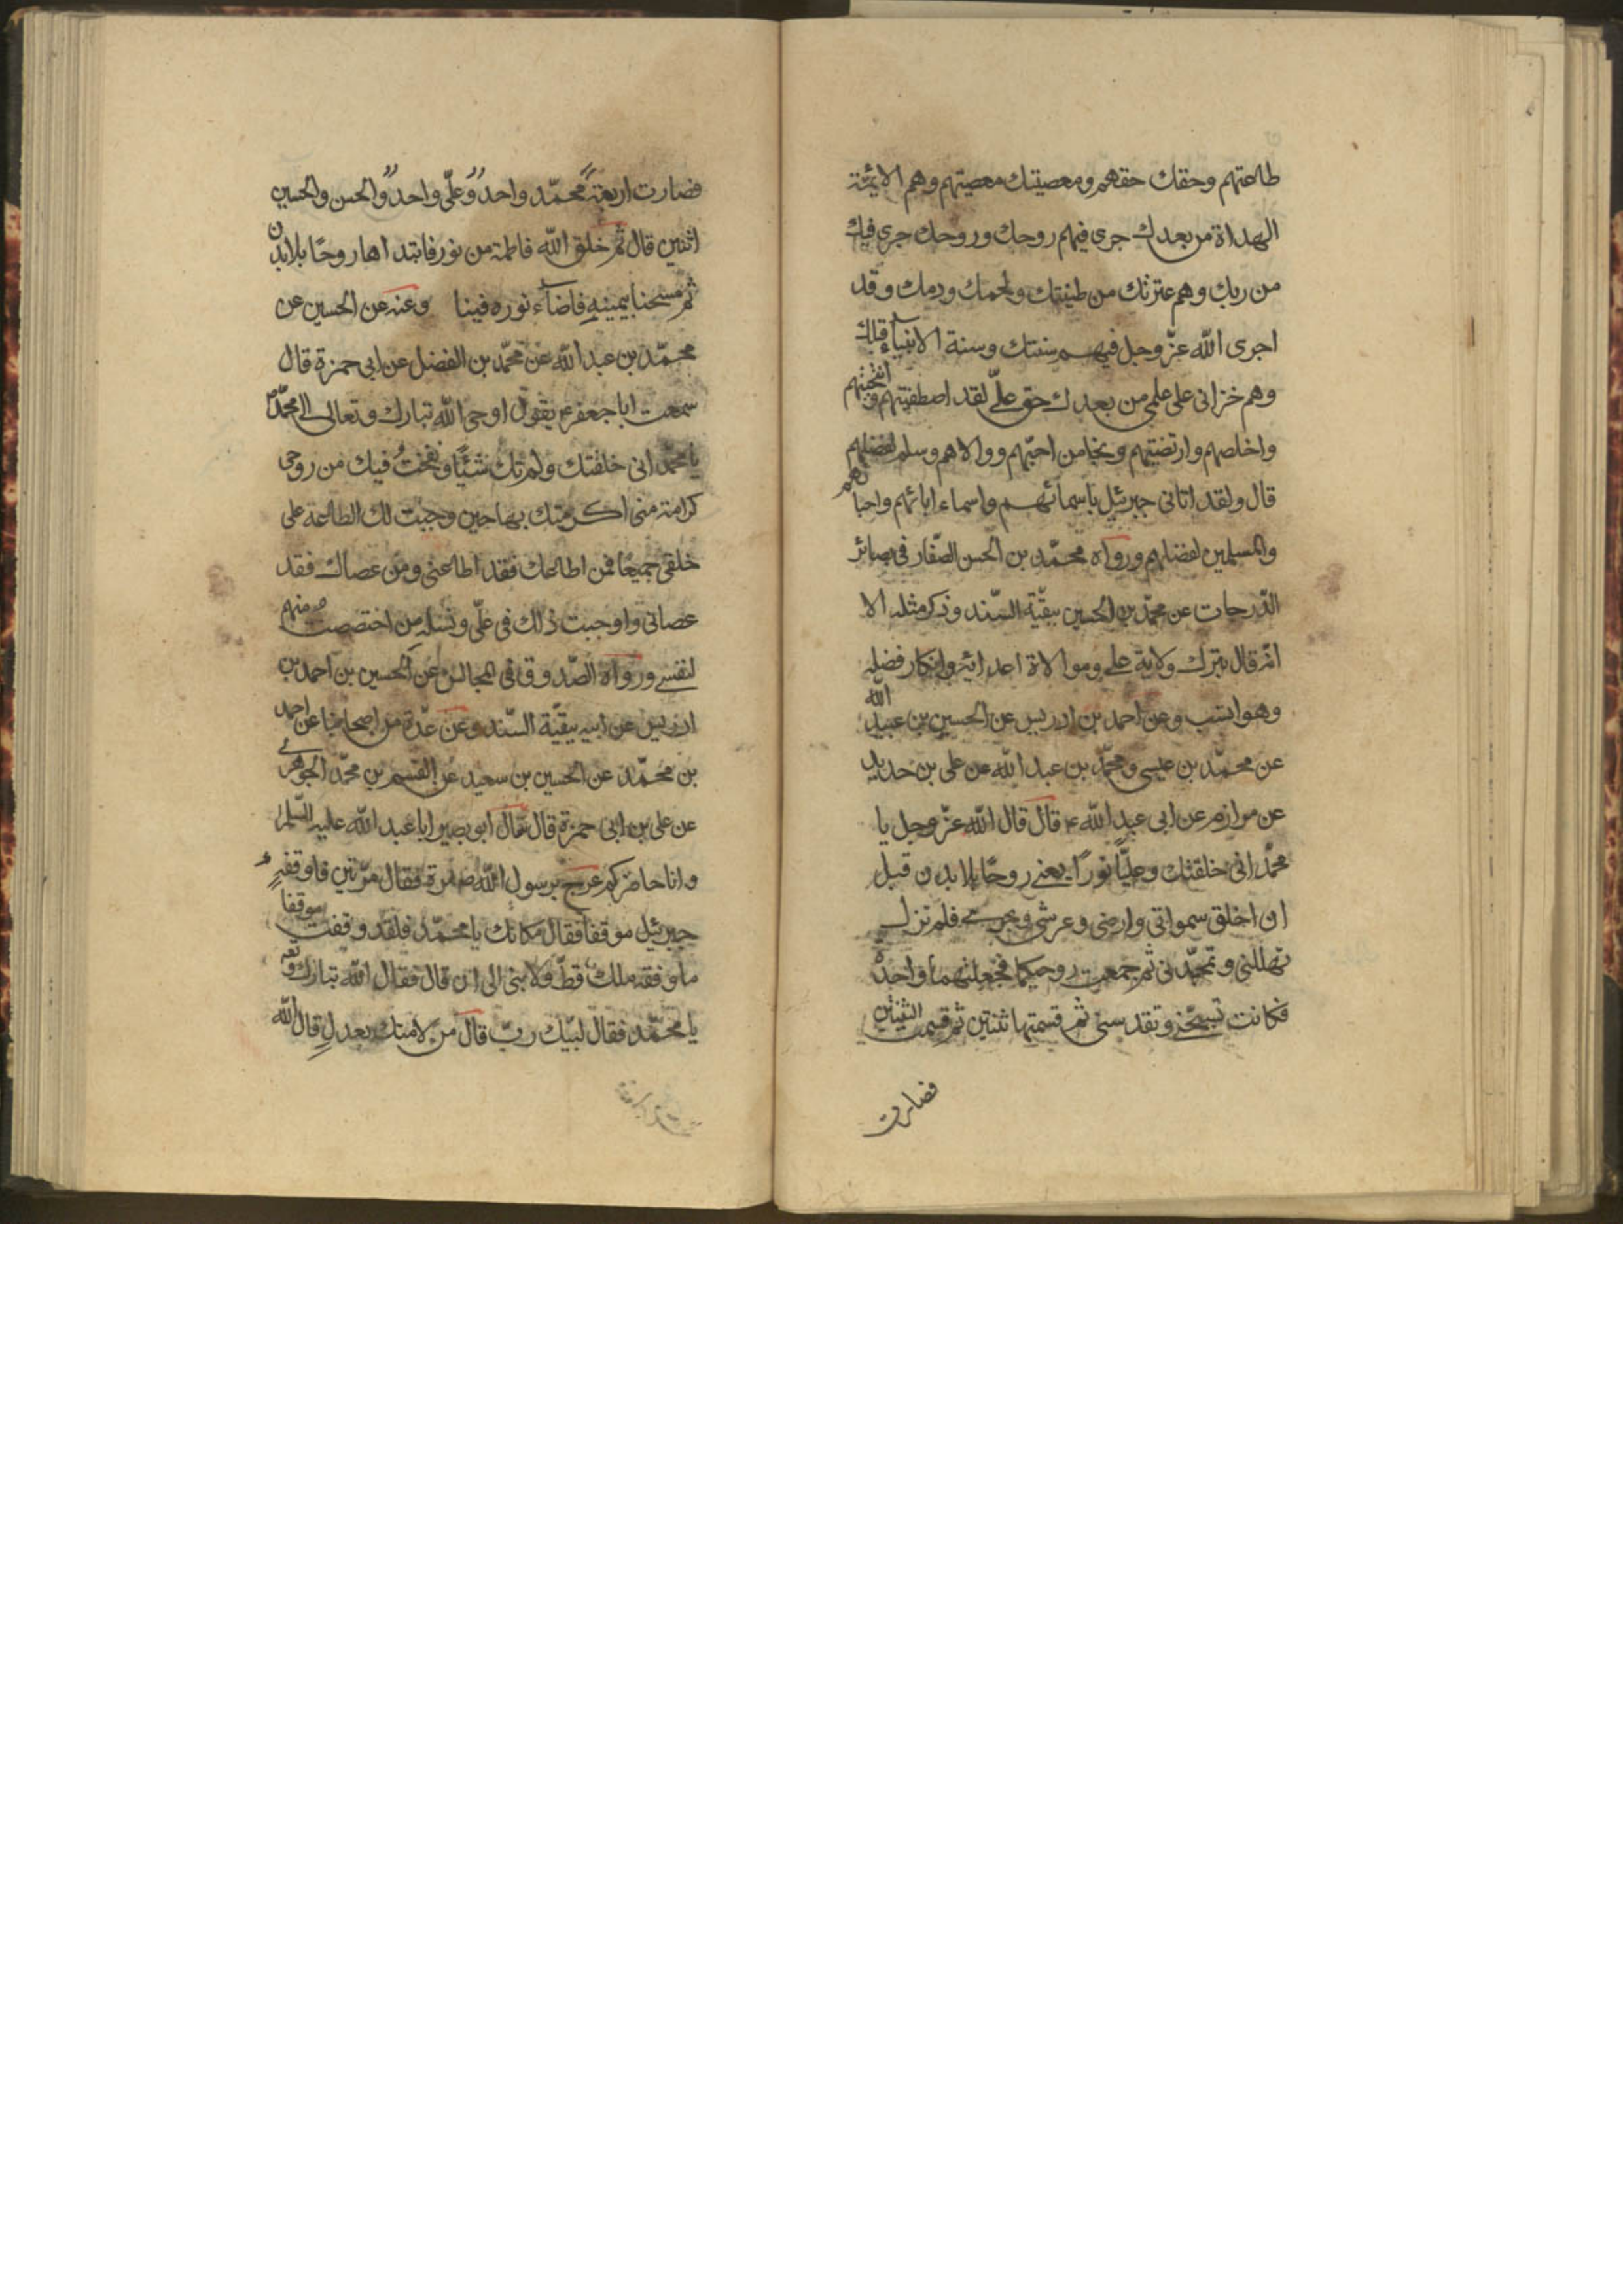 طاعتهم وحقك حقهم ومعصيتك معصيتهم وهم الائمّة
الهداة من بعدك جرى فيهم روحك وروحك جرى فيك
من ربك وهم عترتك من طينتك ولحمك ودمك وقد
اجرى الله عزّ وجل فيهم سنتك وسنة الانبياء قبلك
وهم خزانى على علمى من بعدك حق علىّ لقد اصطفيتهم وانتجبتهم
واخلصهم وارتضيتهم ونجا من احبّهم ووالاهم وسلم لفضلهم
قال ولقد اتانى جبرئيل باسمائهم واسماء ابائهم واحبائهم
والمسلمين لفضلهم ورواه محمّد بن الحسن الصّفار فى بصائر
الدّرجات عن محمّد بن الحسين ببقيّة السّند وذكر مثله الا
انّه قال بترك ولاية على وموالاة اعدائه وانكار فضله
وهو انسب وعن احمد بن ادريس عن الحسين بن عبيد الله
عن محمّد بن عيسى ومحمّد بن عبد الله عن على بن حديد
عن مرازم عن ابى عبد الله ع قال قال الله عزّ وجل يا
محمّد انى خلقتك وعليّا نورًا يعنى روحًا بلا بدن قبل
ان اخلق سمواتى وارضى وعرشى وبحرى فلم تزل
تهللنى وتمجّدنى ثم جمعت روحيكما فجعلتهما واحدة
فكانت تمجّدنى وتقدسنى ثم قسمتها ثنتين ثم قسمت الثنتين
فصارت
فصارت اربعةً محمّد واحدٌ وعلىّ واحدٌ والحسن والحسين
اثنين قال ثم خلق الله فاطمة من نور فابتداها روحًا بلا بدن
ثم مسحنا بيمينه فاضاء نوره فينا وعنه عن الحسين عن
محمّد بن عبد الله عن محمّد بن الفضل عن ابى حمزة قال
سمعت ابا جعفر ع يقول اوحى الله تبارك وتعالى الى محمّد ص
يا محمّد انى خلقتك ولم تك شيئًا ونفختُ فيك من روحى
كرامة منى اكرمتك بها حين وجبت لك الطاعة على
خلقى جميعًا فمن اطاعك فقد اطاعنى ومن عصاك فقد
عصانى واوجبت ذلك فى علىّ ونسله من اختصصت منهم
لنفسى ورواه الصّدوق فى المجالس عن الحسين بن احمد بن
ادريس عن ابيه ببقيّة السّند وعن عدّة من اصحابنا عن احمد
بن محمّد عن الحسين بن سعيد عن القسم بن محمّد الجوهرى
عن على بن ابى حمزة قال سال ابو بصير ابا عبد الله عليه السّلم
وانا حاضر كم عرج برسول الله ص مرة فقال مرّتين فاوقفه
جبرئيل موقفا فقال مكانك يا محمّد فلقد وقفت موقفا
ما وقفه ملك قطّ ولا نبى الى ان قال فقال الله تبارك وتعه
يا محمّد فقال لبّيك ربّ قال من لامتك بعدك قال الله